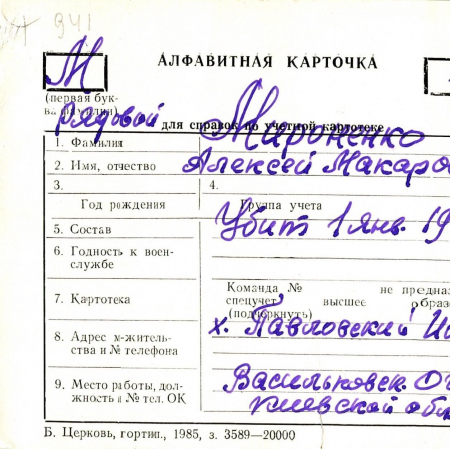 941
М
АЛФАВИТНАЯ КАРТОЧКА
(первая бук-
ва фамилии)
рядовой для справок по учетной картотеке
1. Фамилия Мироненко
2. Имя, отчество Алексей Макаро
3.
4.
Год рождения Группа учета
5. Состав Убит 1 янв. 19
6. Годность к воен-
службе
Команда № не предназ
7. Картотека спецучет высшее образо
(подчеркнуть)
8. Адрес жительства и № телефона х. Павловский
9. Место работы, дол-
жность и № тел. ОК
Васильковск.
Киевской обл
Б. Церковь, гортип., 1985, з. 3589—20000